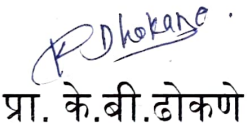 K Dhokane.
प्रा. के.बी.ढोकणे